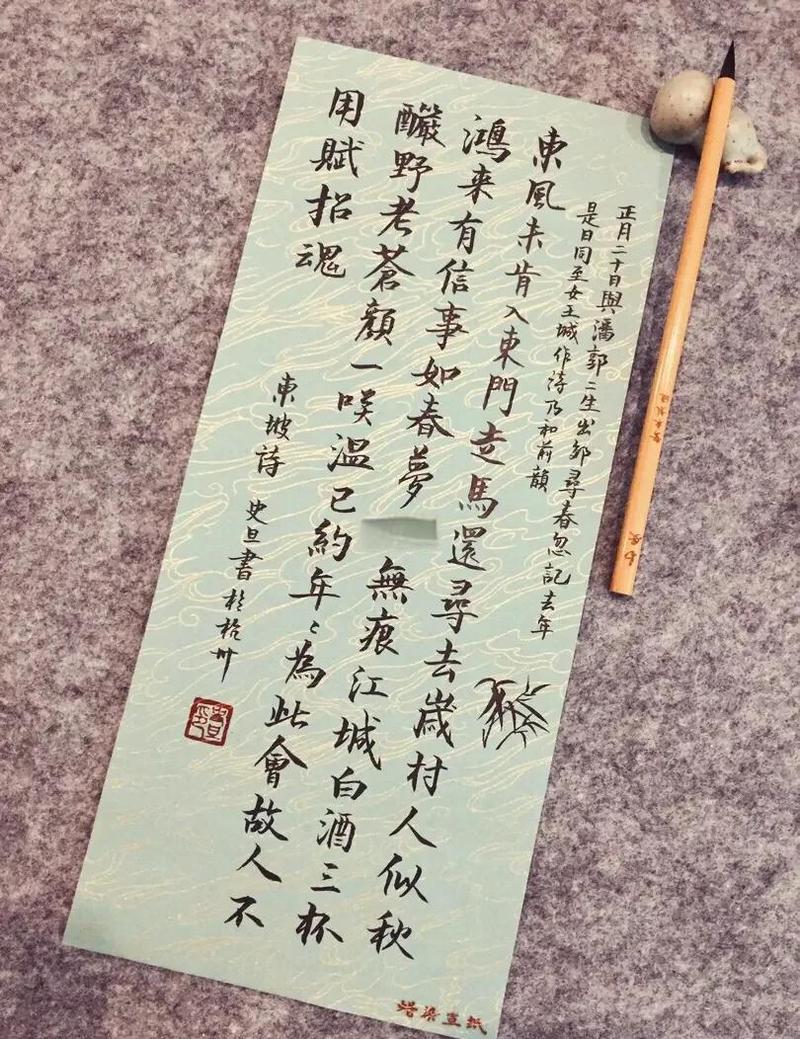 正月二十日與潘郭二生出郊尋春忽記去年
是日同至女王城作詩乃和前韻
東風未肯入東門走馬還尋去歲村人似秋
鴻来有信事如春夢無痕江城白酒三杯
釅野老蒼顏一咲温已約年〻為此會故人不
用賦招魂
東坡詩
史旦書於州
染宣紙